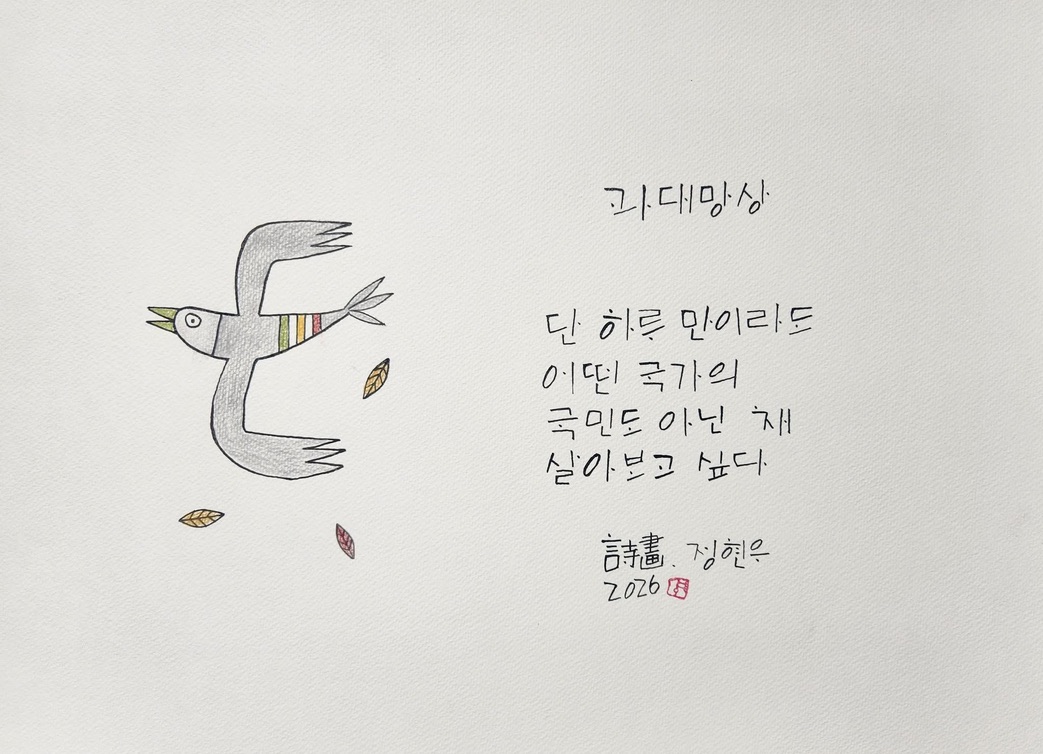 과대망상
단 하루 만이라도
어떤 국가의
국민도 아닌 채
살아보고 싶다
詩畫. 정현우
2026